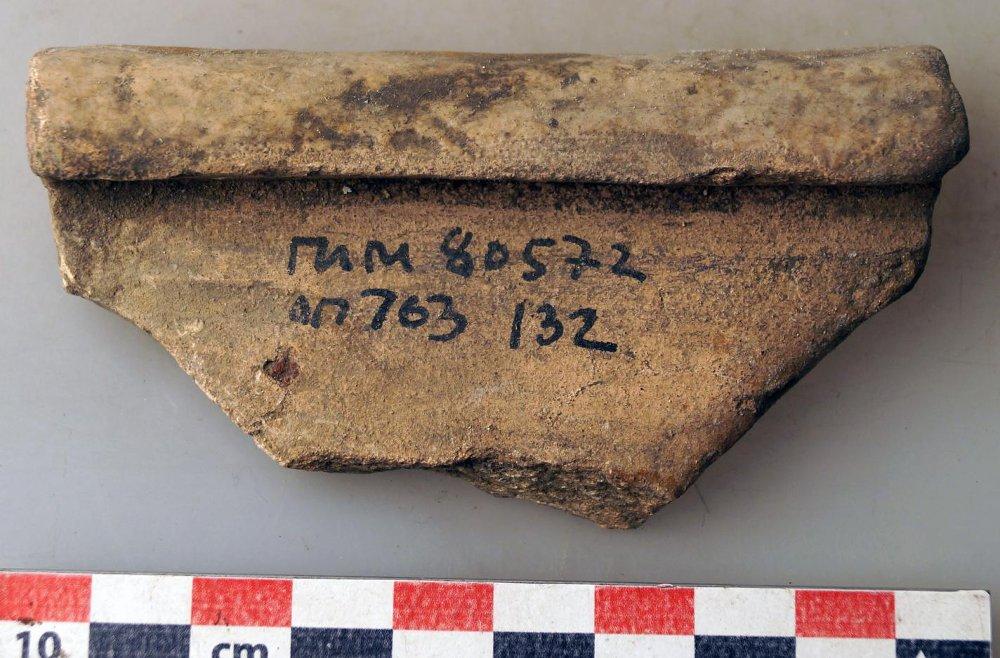 гим 80572
оп 763 132
10 cm